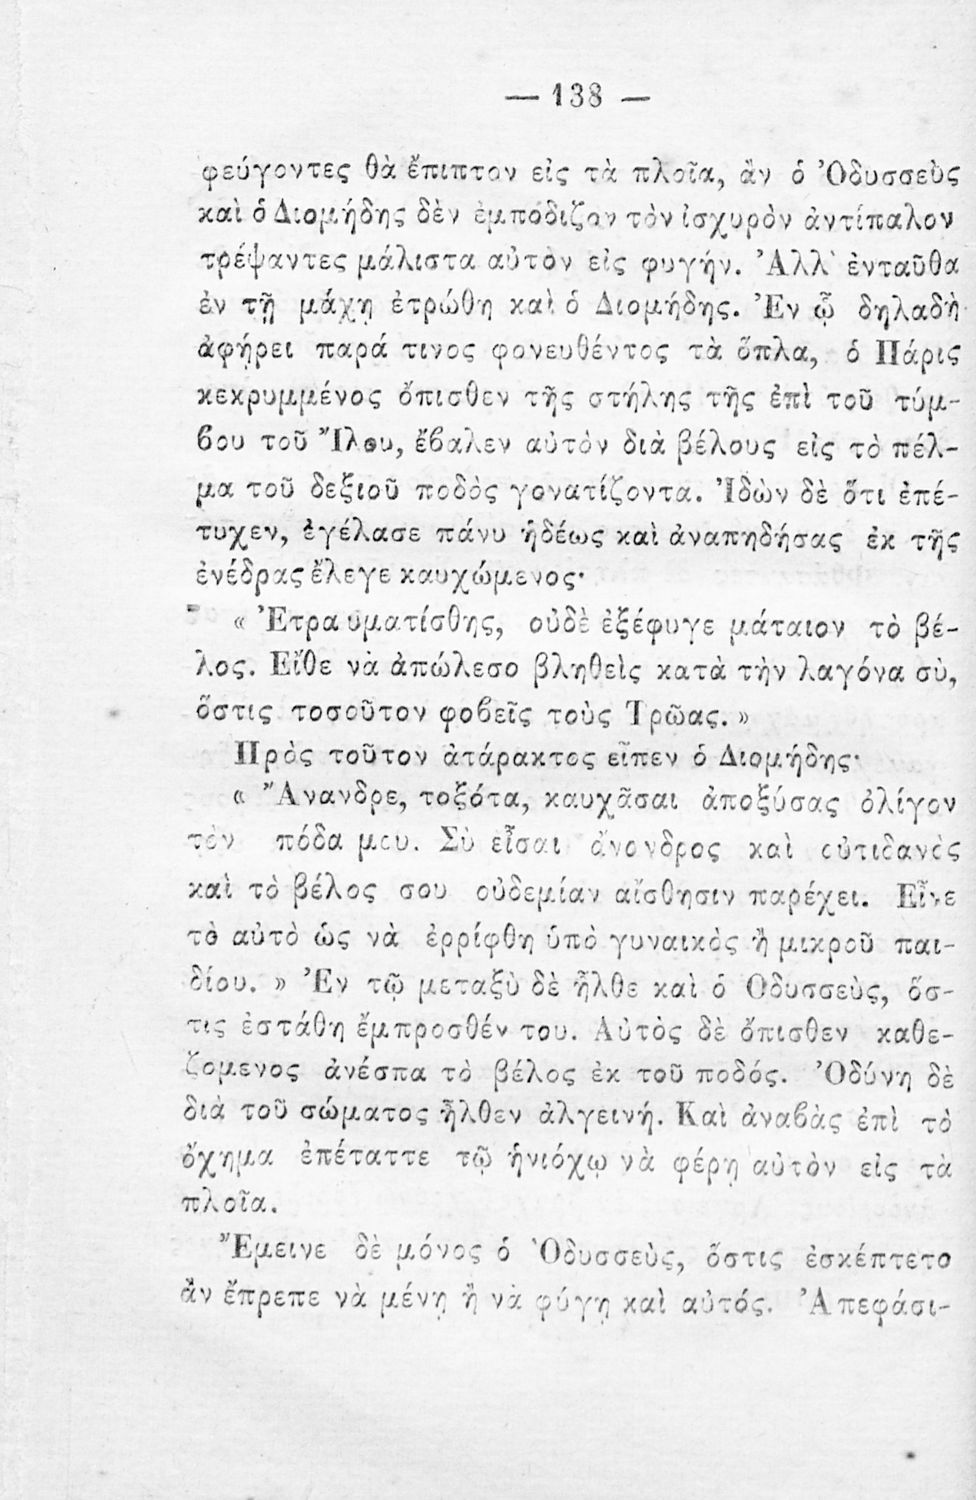 — 138 —
φεύγοντες θὰ ἔπιπτον εἰς τὰ πλοῖα, ἂν ὁ Ὀδυσσεὺς
καὶ ὁ Διομήδης δὲν ἐμπόδιζον τὸν ἰσχυρὸν ἀντίπαλον
τρέψαντες μάλιστα αὐτὸν εἰς φυγήν. Ἀλλ' ἐνταῦθα
ἐν τῇ μάχῃ ἐτρώθη καὶ ὁ Διομήδης. Ἐν ᾧ δηλαδὴ
ἀφῄρει παρά τινος φονευθέντος τὰ ὅπλα, ὁ Πάρις
κεκρυμμένος ὄπισθεν τῆς στήλης τῆς ἐπὶ τοῦ τύμ-
βου τοῦ Ἴλου, ἔβαλεν αὐτὸν διὰ βέλους εἰς τὸ πέλ-
μα τοῦ δεξιοῦ ποδὸς γονατίζοντα. Ἰδὼν δὲ ὅτι ἐπέ-
τυχεν, ἐγέλασε πάνυ ἡδέως καὶ ἀναπηδήσας ἐκ τῆς
ἐνέδρας ἔλεγε καυχώμενος·
« Ἐτραυματίσθης, οὐδὲ ἐξέφυγε μάταιον τὸ βέ-
λος. Εἴθε νὰ ἀπώλεσο βληθεὶς κατὰ τὴν λαγόνα σὺ,
ὅστις τοσοῦτον φοβεῖς τοὺς Τρῶας. »
Πρὸς τοῦτον ἀτάρακτος εἶπεν ὁ Διομήδης·
« Ἄνανδρε, τοξότα, καυχᾶσαι ἀποξύσας ὀλίγον
τὸν πόδα μου. Σὺ εἶσαι ἄνονδρος καὶ οὐτιδανὸς
καὶ τὸ βέλος σου οὐδεμίαν αἴσθησιν παρέχει. Εἶνε
τὸ αὐτὸ ὡς νὰ ἐρρίφθη ὑπὸ γυναικὸς ἢ μικροῦ παι-
δίου. » Ἐν τῷ μεταξὺ δὲ ἦλθε καὶ ὁ Ὀδυσσεὺς, ὅσ-
τις ἐστάθη ἔμπροσθέν του. Αὐτὸς δὲ ὄπισθεν καθε-
ζομενος ἀνέσπα τὸ βέλος ἐκ τοῦ ποδός. Ὀδύνη δὲ
διὰ τοῦ σώματος ἦλθεν ἀλγεινή. Καὶ ἀναβὰς ἐπὶ τὸ
ὄχημα ἐπέταττε τῷ ἡνιόχῳ νὰ φέρῃ αὐτὸν εἰς τὰ
πλοῖα.
Ἔμεινε δὲ μόνος ὁ Ὀδυσσεὺς, ὅστις ἐσκέπτετο
ἂν ἔπρεπε νὰ μένῃ ἢ νὰ φύγῃ καὶ αὐτός. Ἀπεφάσι-